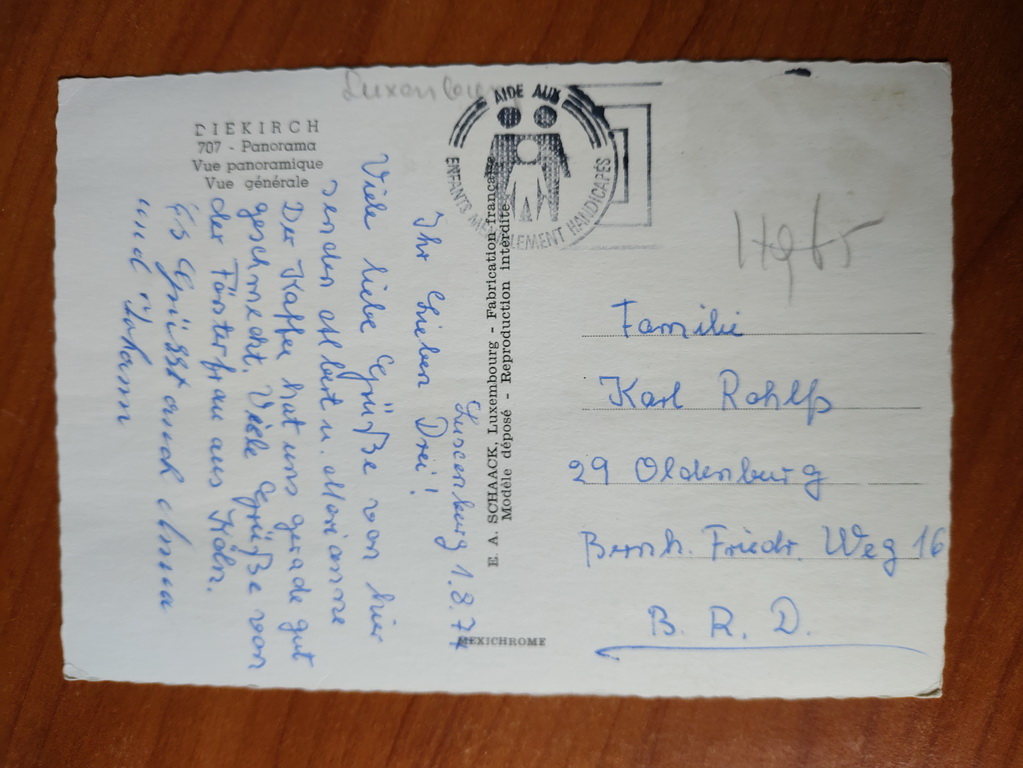 Luxemburg
DIEKIRCH
707 - Panorama
Vue panoramique
Vue générale
AIDE AUX
ENFANTS MENTALEMENT HANDICAPÉS
E. A. SCHAACK, Luxembourg - Fabrication française
Modèle déposé - Reproduction interdite
MEXICHROME
Luxenburg 1.8.77
Ihr Lieben Drei!
Viele liebe Grüße von hier
senden Albert u. Marianne
Der Kaffee hat uns gerade gut
geschmeckt. Viele Grüße von
der Försterfrau aus Köln.
Es Grüßt auch Anna
und Johann
Familie
Karl Rohlfs
29 Oldenburg
Bernh. Friedr. Weg 16
B. R. D.